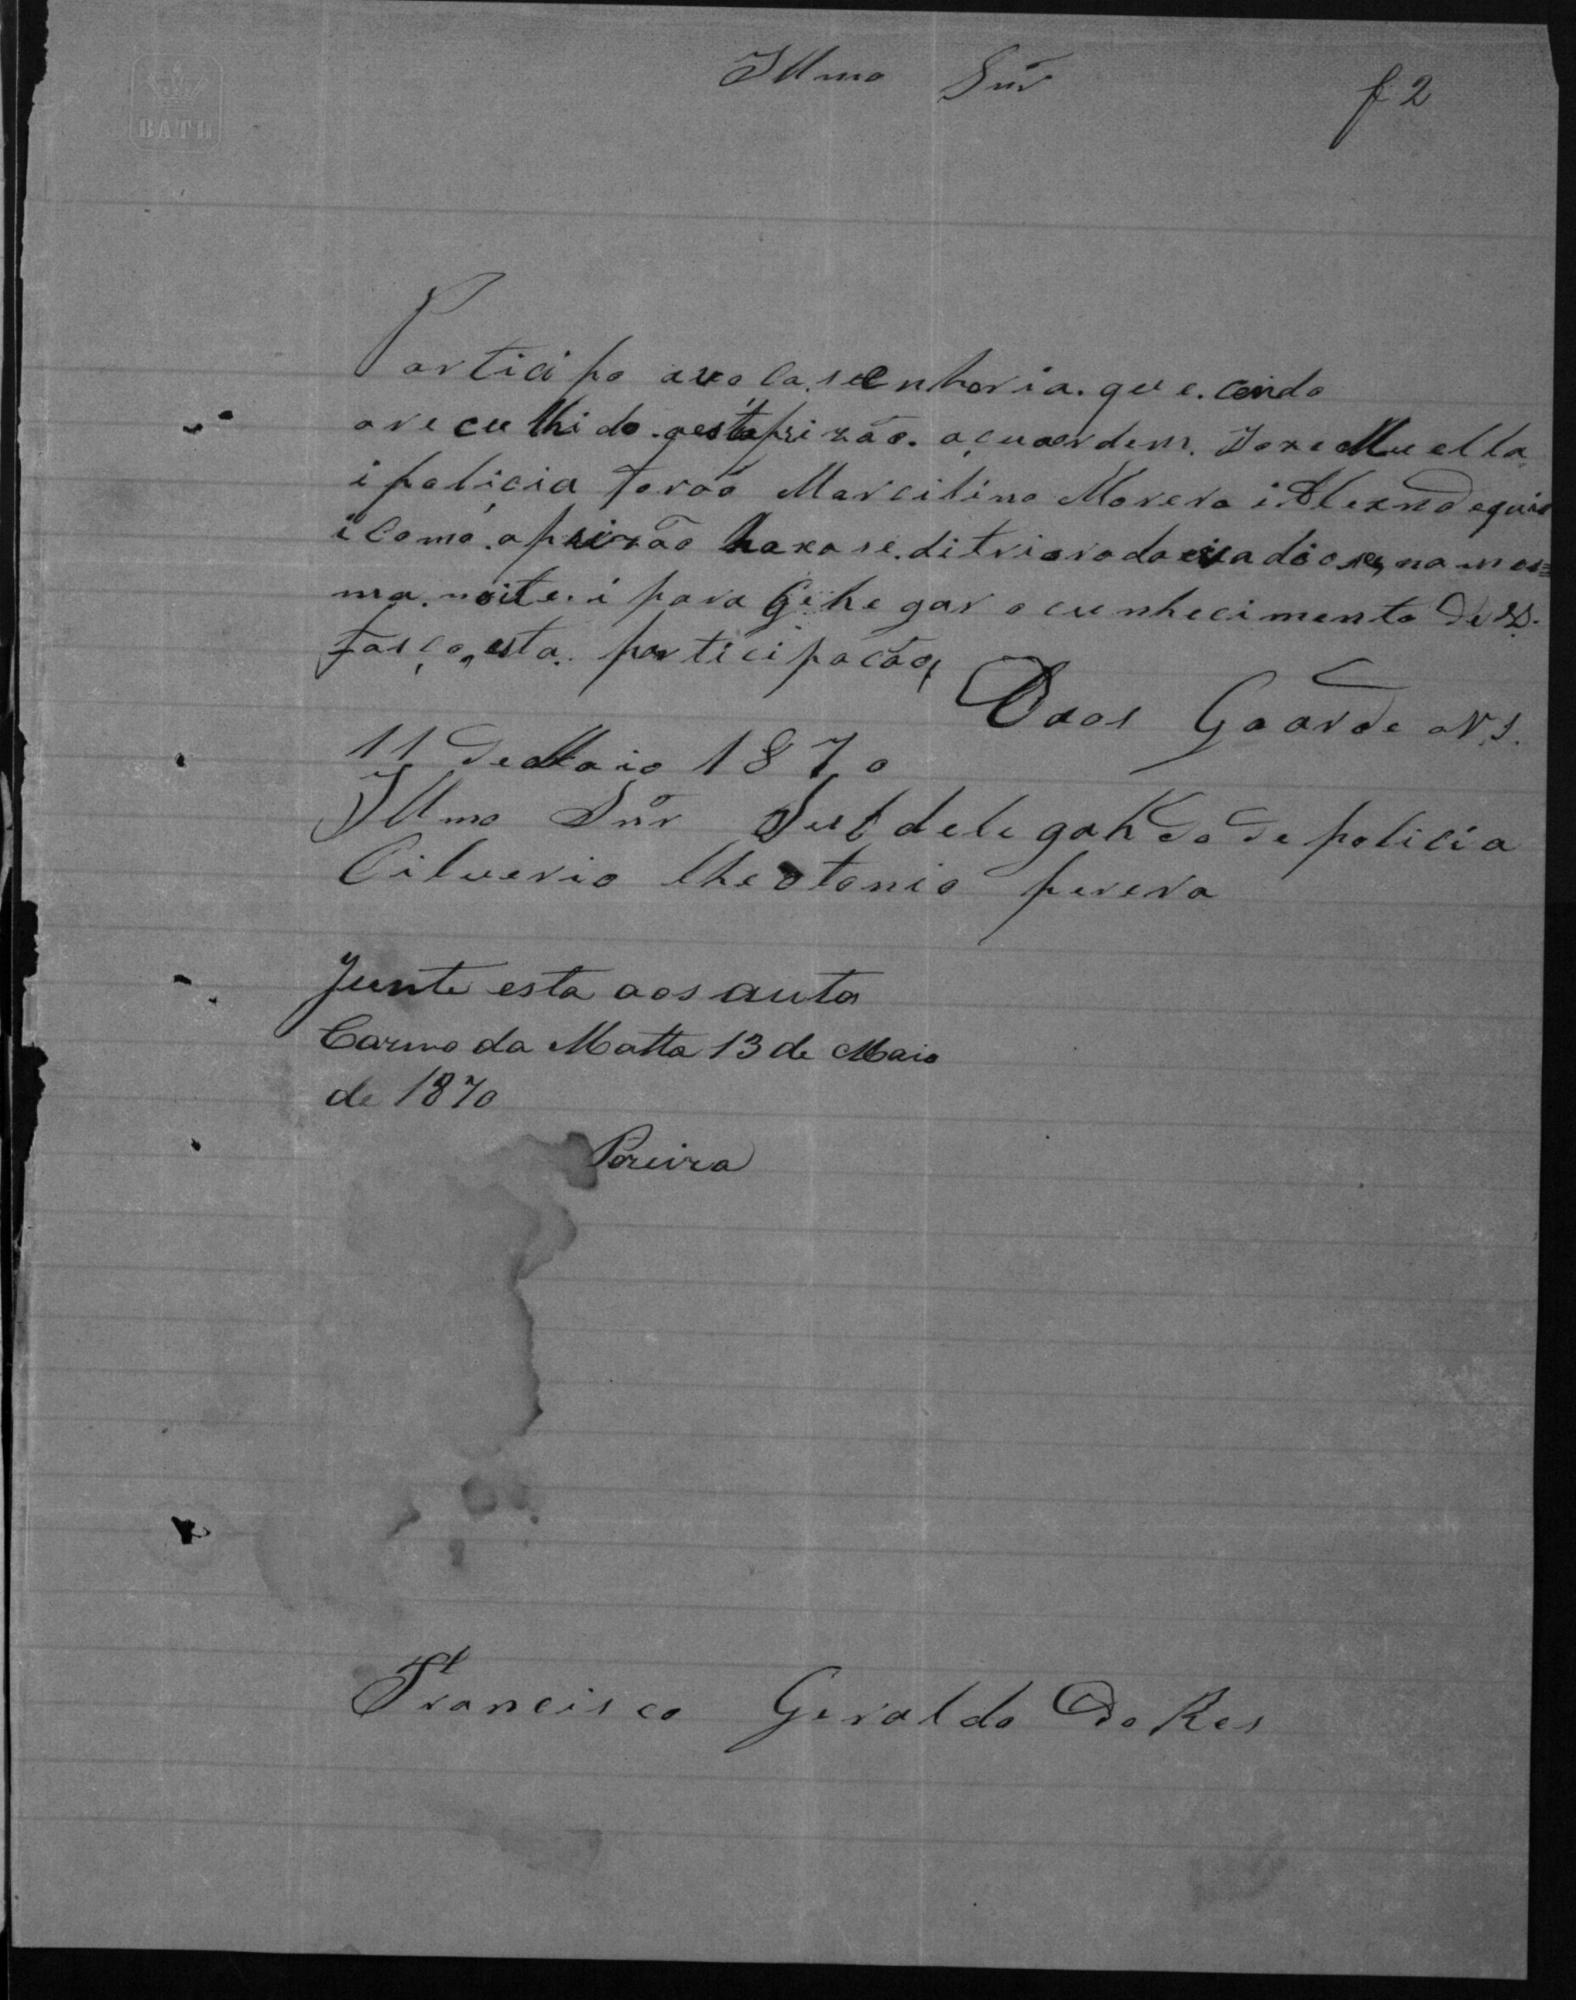 BATH
Illmo Snr
f 2
Participo avoca.seenhoria.que.cendo
areculhido.aesta prizão.açuaordem.Joze Muella
i policia forão Marcilino Morera i
i Como.aprizão haxase.ditriorada na mes=
ma.noite.i para Gehegar o cunhecimento de
fasço esta.participação
Daos Goarde
11 de Maio 1870
Illmo Snr Subdelegahdo de policia
Cilverio theotonio perera
Junte esta aos autos
Carmo da Matta 13 de Maio
de 1870
Pereira
Francisco Geraldo Do Res